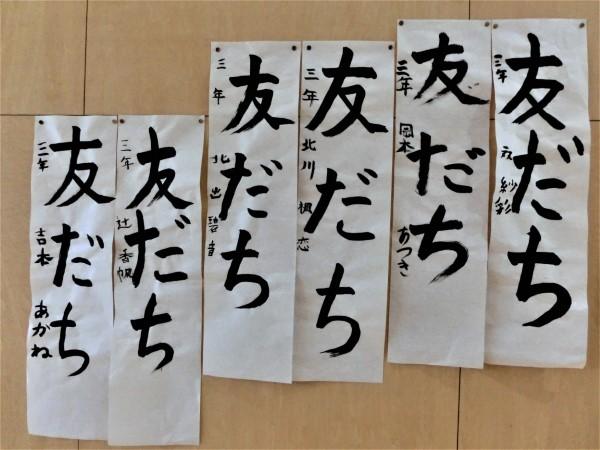 友だち
三年 紗彩
友だち
三年 岡本 あつき
友だち
三年 北川 楓恋
友だち
三年 北出 碧音
友だち
三年 辻 香帆
友だち
三年 吉本 あかね